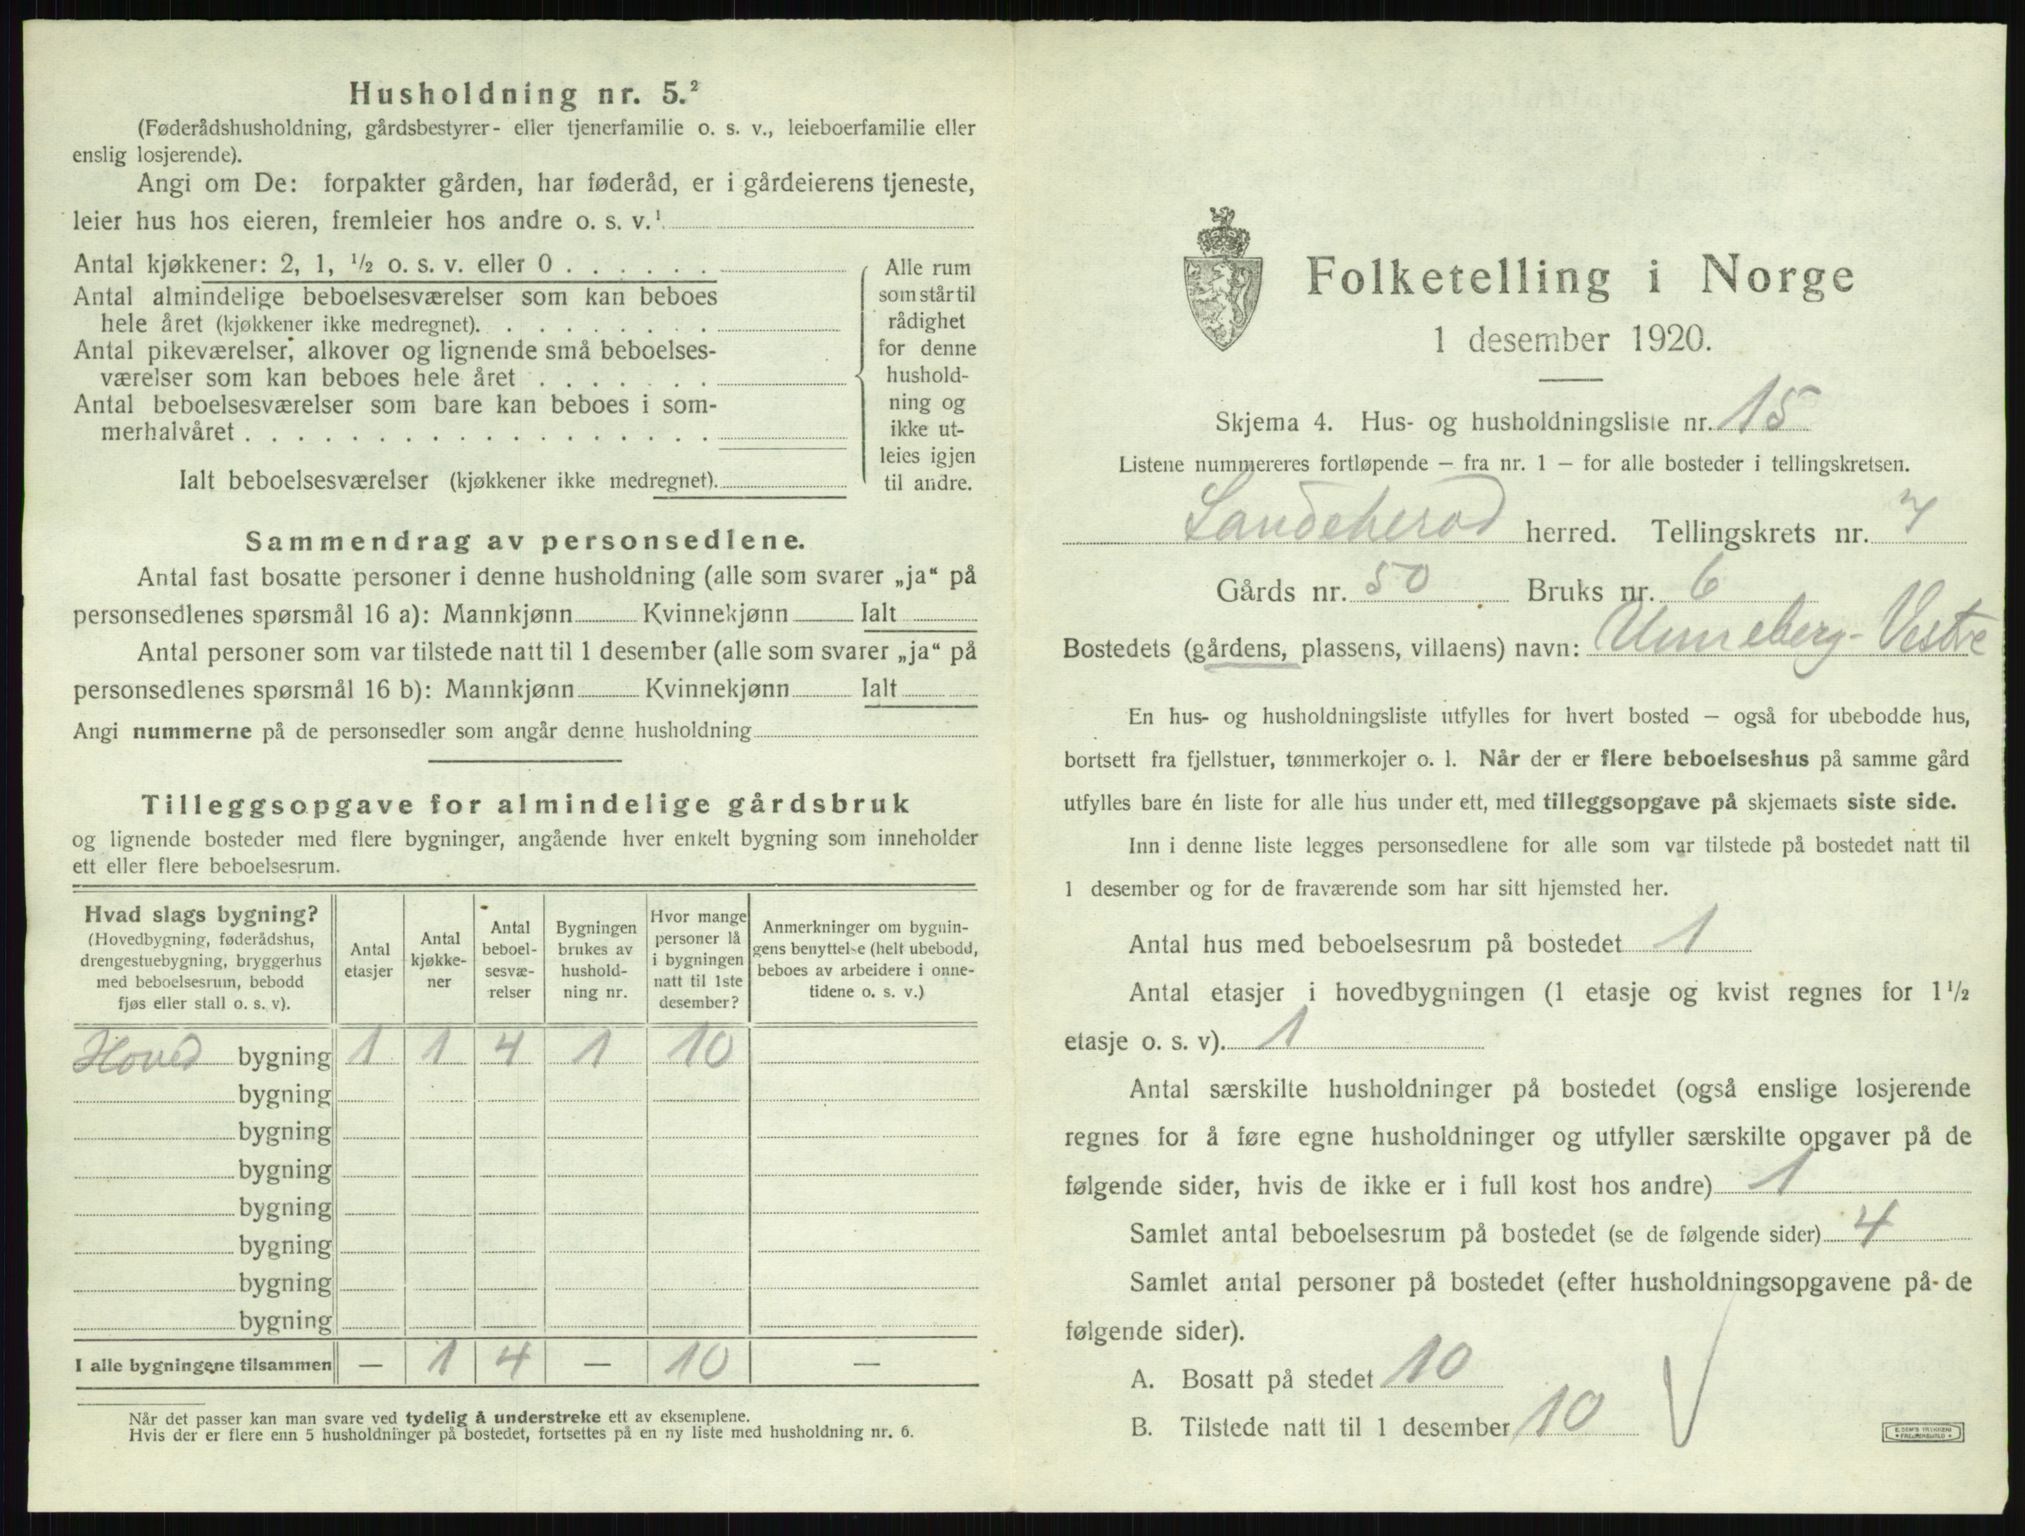 Husholdning nr. 5.²
(Føderådshusholdning, gårdsbestyrer- eller tjenerfamilie o. s. v., leieboerfamilie eller
enslig losjerende).
Angi om De: forpakter gården, har føderåd, er i gårdeierens tjeneste,
leier hus hos eieren, fremleier hos andre o. s. v.¹
Antal kjøkkener: 2, 1, ½ o. s. v. eller 0 . . . . . .
Antal almindelige beboelsesværelser som kan beboes
hele året (kjøkkener ikke medregnet). . . . . . . . .
Antal pikeværelser, alkover og lignende små beboelses-
værelser som kan beboes hele året . . . . . . .
Antal beboelsesværelser som bare kan beboes i som-
merhalvåret . . . . . . . . . . . . . . . . . .
Ialt beboelsesværelser (kjøkkener ikke medregnet).
Alle rum
som står til
rådighet
for denne
hushold-
ning og
ikke ut-
leies igjen
til andre.
Sammendrag av personsedlene.
Antal fast bosatte personer i denne husholdning (alle som svarer „ja“ på
personsedlenes spørsmål 16 a): Mannkjønn Kvinnekjønn Ialt
Antal personer som var tilstede natt til 1 desember (alle som svarer „ja“ på
personsedlenes spørsmål 16 b): Mannkjønn Kvinnekjønn Ialt
Angi nummerne på de personsedler som angår denne husholdning
Tilleggsopgave for almindelige gårdsbruk
og lignende bosteder med flere bygninger, angående hver enkelt bygning som inneholder
ett eller flere beboelsesrum.
Hvad slags bygning?
(Hovedbygning, føderådshus,
drengestuebygning, bryggerhus
med beboelsesrum, bebodd
fjøs eller stall o. s. v).
Antal
etasjer
Antal
kjøkke-
ner
Antal
beboel-
sesvæ-
relser
Bygningen
brukes av
hushold-
ning nr.
Hvor mange
personer lå
i bygningen
natt til 1ste
desember?
Anmerkninger om bygnin-
gens benyttelse (helt ubebodd,
beboes av arbeidere i onne-
tidene o. s. v.)
Hoved bygning 1 1 4 1 10
bygning
bygning
bygning
bygning
bygning
bygning
bygning
I alle bygningene tilsammen — 1 4 — 10 —
Når det passer kan man svare ved tydelig å understreke ett av eksemplene.
Hvis der er flere enn 5 husholdninger på bostedet, fortsettes på en ny liste med husholdning nr. 6.
Folketelling i Norge
1 desember 1920.
Skjema 4. Hus- og husholdningsliste nr. 15
Listene nummereres fortløpende — fra nr. 1 — for alle bosteder i tellingskretsen.
Sandeherad herred. Tellingskrets nr. 7
Gårds nr. 50 Bruks nr. 6
Bostedets (gårdens, plassens, villaens) navn: Unneberg-Vestre
En hus- og husholdningsliste utfylles for hvert bosted — også for ubebodde hus,
bortsett fra fjellstuer, tømmerkojer o. l. Når der er flere beboelseshus på samme gård
utfylles bare én liste for alle hus under ett, med tilleggsopgave på skjemaets siste side.
Inn i denne liste legges personsedlene for alle som var tilstede på bostedet natt til
1 desember og for de fraværende som har sitt hjemsted her.
Antal hus med beboelsesrum på bostedet 1
Antal etasjer i hovedbygningen (1 etasje og kvist regnes for 1 ½
etasje o. s. v). 1
Antal særskilte husholdninger på bostedet (også enslige losjerende
regnes for å føre egne husholdninger og utfyller særskilte opgaver på de
følgende sider, hvis de ikke er i full kost hos andre) 1
Samlet antal beboelsesrum på bostedet (se de følgende sider) 4
Samlet antal personer på bostedet (efter husholdningsopgavene på de
følgende sider).
A. Bosatt på stedet 10
B. Tilstede natt til 1 desember 10